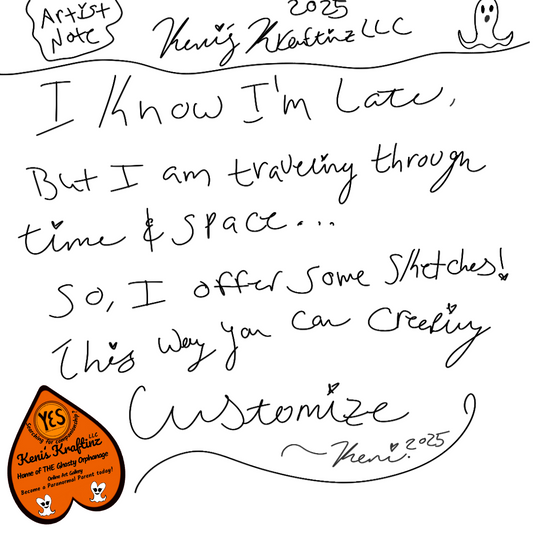 Artist
Note
2025
Keni's Kraftinz LLC
I Know I'm Late,
But I am traveling through
time & space...
So, I offer some sketches!
This way you can creepily
Customize
~Keni. 2025
YES
Searching for companionship?
Keni's Kraftinz LLC
Home of THE Ghosty Orphanage
Online Art Gallery
Become a Paranormal Parent today!